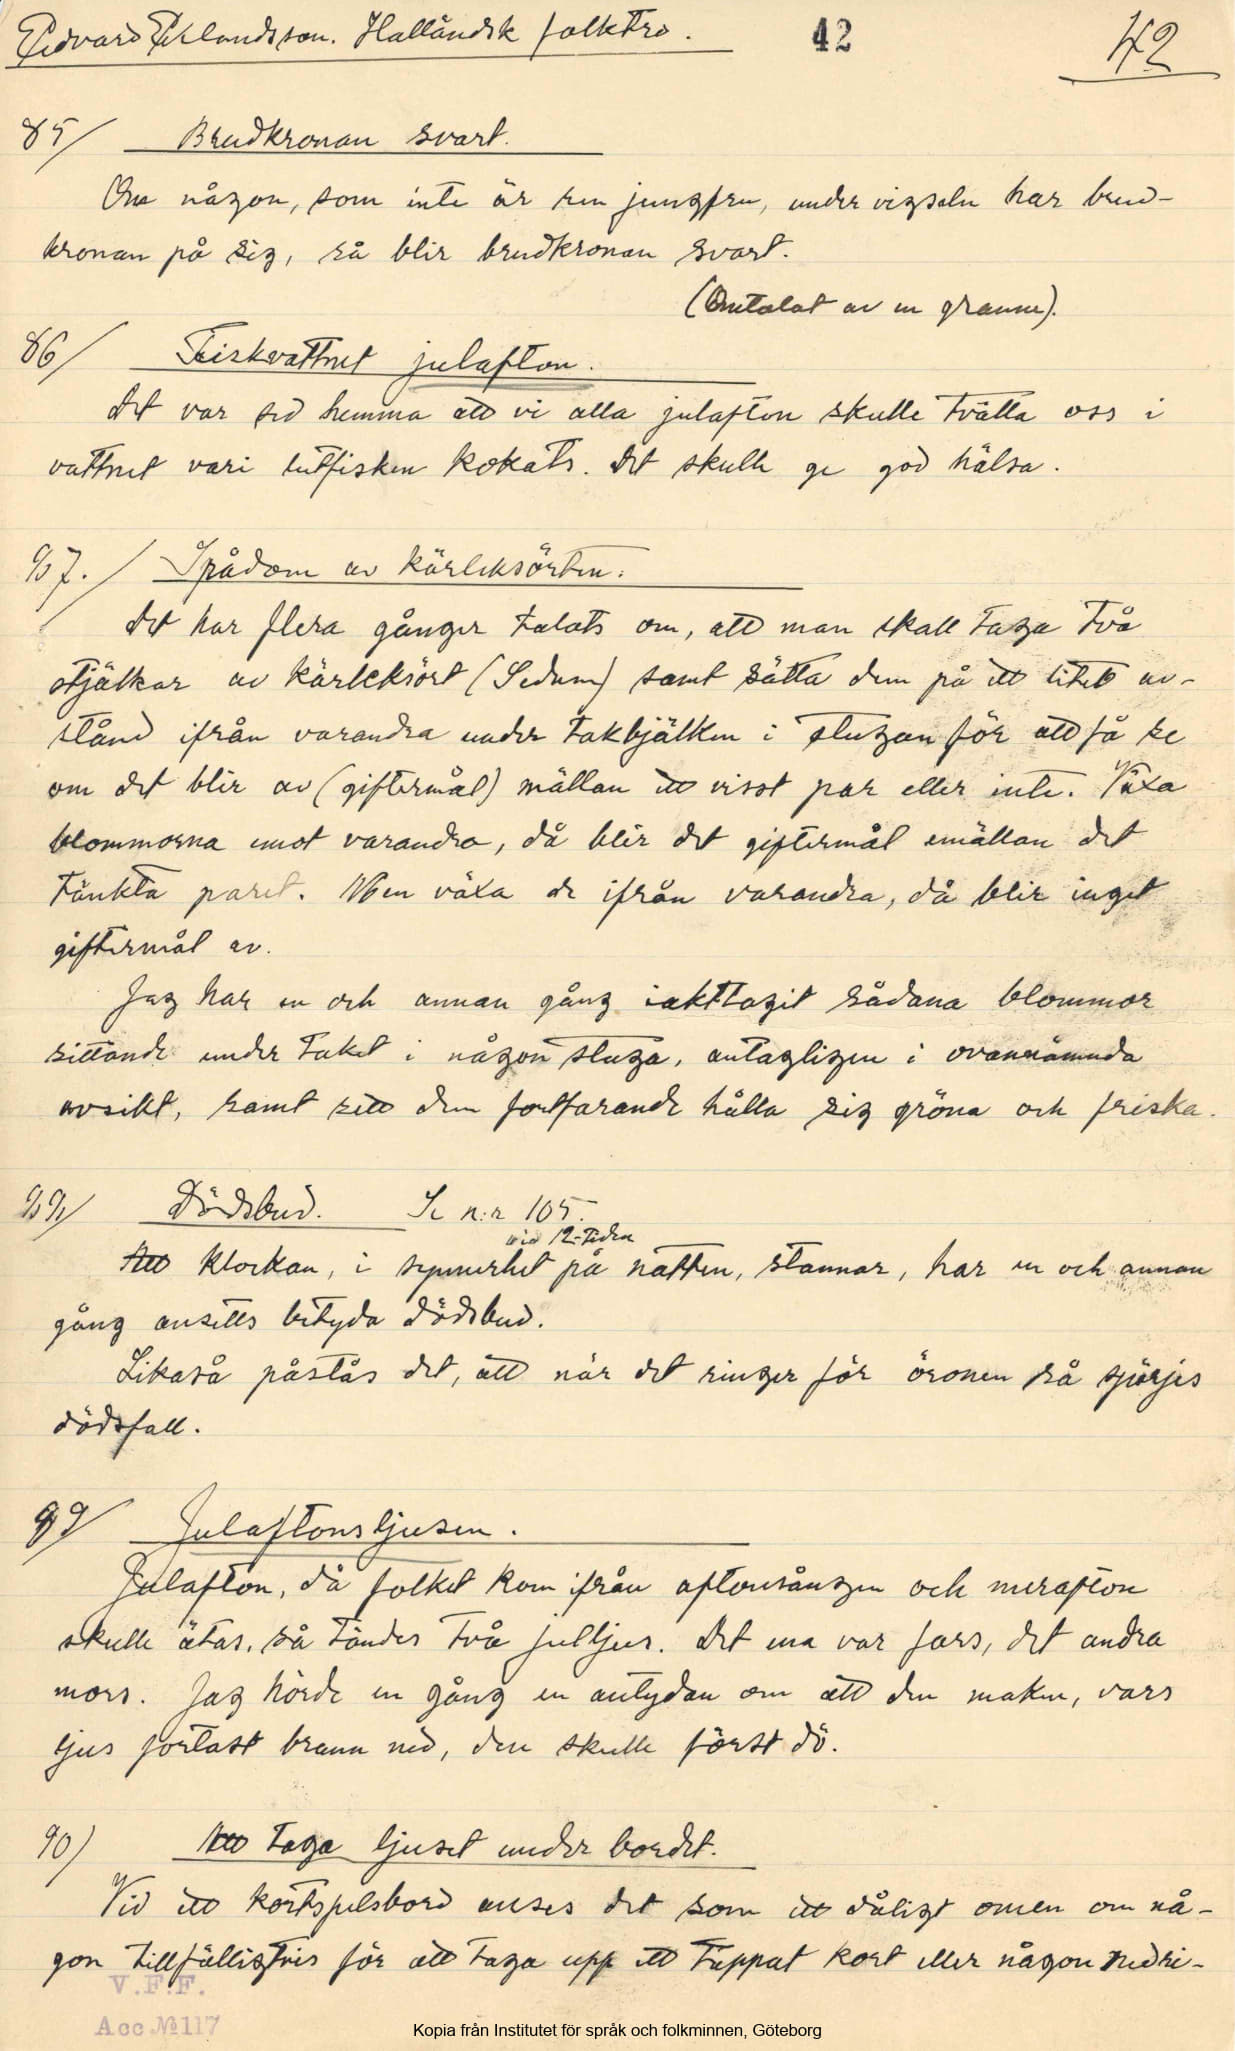 Edvard Erlandsson. Halländsk folktro. 42 42
85/ Brudkronan svart.
Om någon, som inte är ren jungfru, under vigseln har brud-
kronan på sig, så blir brudkronan svart.
(Omtalat av en granne).
86/ Fiskvattnet julafton.
Det var sed hemma att vi alla julafton skulle tvätta oss i
vattnet vari lutfisken kokats. Det skulle ge god hälsa.
87./ Spådom av kärleksörten.
Det har flera gånger talats om, att man skall taga två
stjälkar av kärleksört (Sedum) samt sätta dem på ett litet av-
stånd ifrån varandra under takbjälken i stugan för att få se
om det blir av (giftermål) mällan ett visst par eller inte. Växa
blommorna emot varandra, då blir det giftermål emällan det
tänkta paret. Men växa de ifrån varandra, då blir inget
giftermål av.
Jag har en och annan gång iakttagit sådana blommor
sittande under taket i någon stuga, antagligen i ovannämnda
avsikt, samt sett dem fortfarande hålla sig gröna och friska.
88/ Dödsbud. Se n:r 105.
vid 12-tiden
Att klockan, i synnerhet på natten, stannar, har en och annan
gång ansetts betyda dödsbud.
Likaså påstås det, att när det ringer för öronen så spörjes
dödsfall.
89/ Julaftonsljusen.
Julafton, då folket kom ifrån aftonsången och merafton
skulle ätas, så tändes två julljus. Det ena var fars, det andra
mors. Jag hörde en gång en antydan om att den maken, vars
ljus fortast brann ned, den skulle först dö.
90/ Att taga ljuset under bordet.
Vid ett kortspelsbord anses det som ett dåligt omen om nå-
gon tillfälligtvis för att taga upp ett tappat kort eller någon nedri-
V.F.F.
Acc №117
Kopia från Institutet för språk och folkminnen, Göteborg